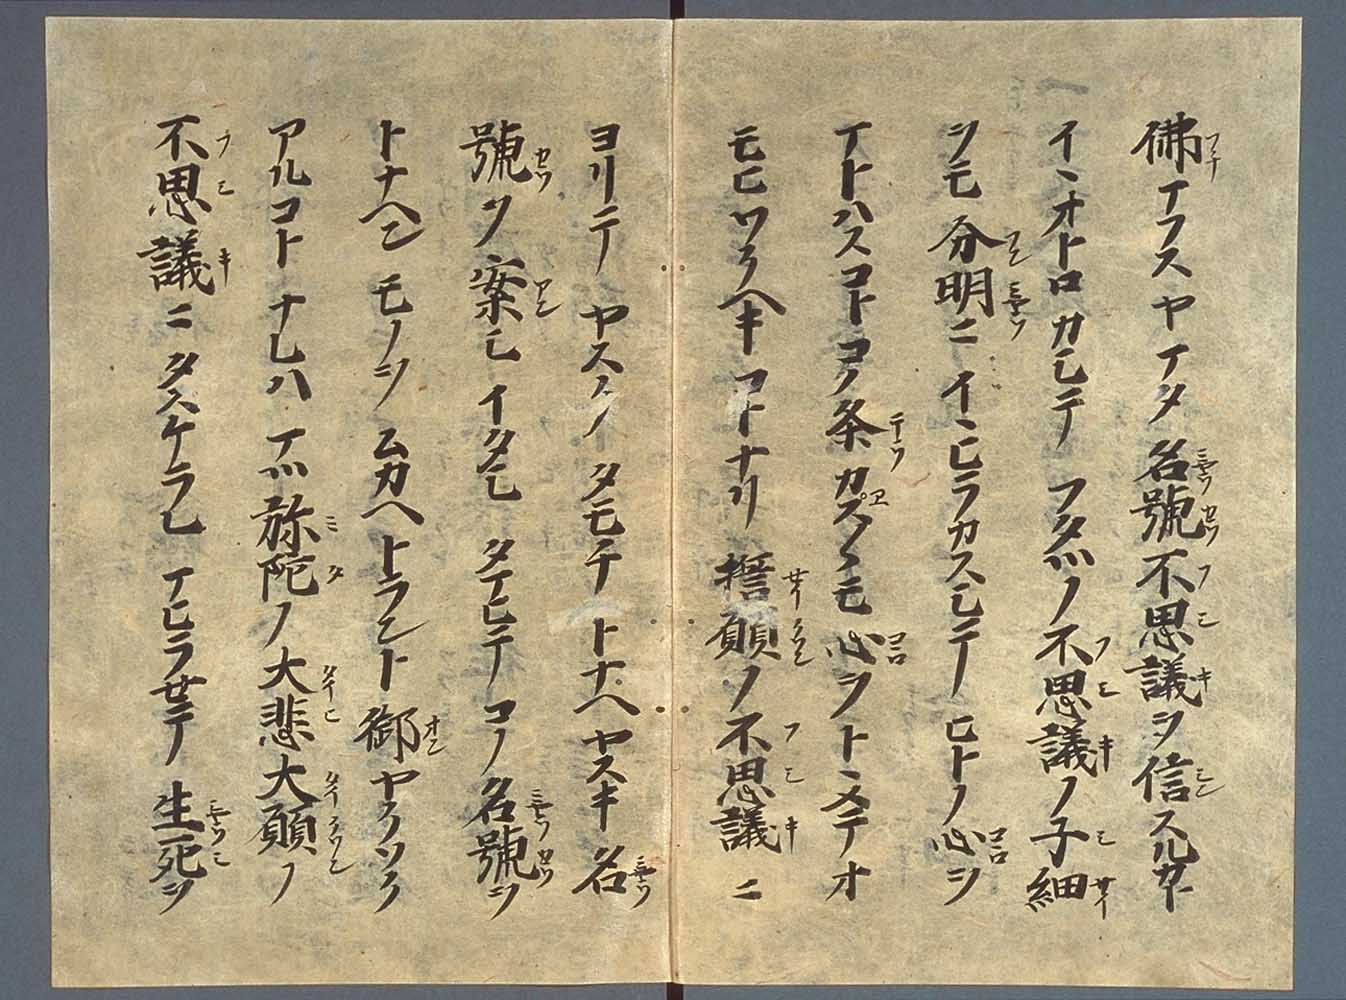 佛マフスヤマタ名號不思議ヲ信スルカト
イヽオトロカシテフタツノ不思議ノ子細
ヲモ分明ニイヽヒラカスシテヒトノ心ヲ
マトハスコトコノ条カヘス〱モ心ヲトヽメテオ
モヒワクヘキコトナリ誓願ノ不思議ニ
ヨリテヤスクタモチトナヘヤスキ名
號ヲ案シイタシタマヒテコノ名號ヲ
トナヘンモノヲムカヘトラント御ヤクソク
アルコトナレハマツ弥陀ノ大悲大願ノ
不思議ニタスケラレマヒラセテ生死ヲ